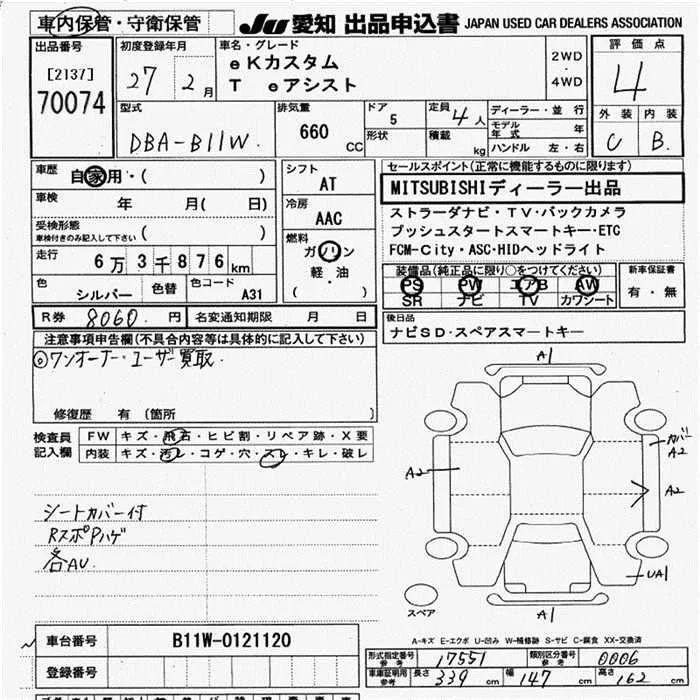 車内保管・守衛保管 JU 愛知 出品申込書 JAPAN USED CAR DEALERS ASSOCIATION
出品番号 [2137] 70074
初度登録年月 27 年 2 月
車名・グレード eKカスタム
T eアシスト
2WD ・ 4WD
評価点 4
外装 C 内装 B
型式 DBA-B11W
排気量 660 CC
ドア 5 形状
定員 4人 積載 kg
ディーラー・並行
モデル年式 年
ハンドル 左・右
車歴 自家用・( )
車検 年 月( 日)
受検形態 車検付きのみ記入して下さい ( )
走行 6万3千876km
色 シルバー 色替 色コード A31
シフト AT
冷房 AAC
燃料 ガソリン
軽・油
( )
セールスポイント(正常に機能するものに限ります)
MITSUBISHIディーラー出品
ストラーダナビ・TV・バックカメラ
プッシュスタートスマートキー・ETC
FCM-City・ASC・HIDヘッドライト
装備品(純正品に限り○をつけてください)
PS PW エアB AW
SR ナビ TV カワシート
新車保証書 有・無
R券 8060 円 名変通知期限 月 日
後日品
ナビSD・スペアスマートキー
注意事項申告欄(不具合内容等は具体的に記入して下さい)
◎ワンオーナー・ユーザー買取
修復歴 有 〔箇所 〕
検査員記入欄
FW キズ・飛石・ヒビ割・リペア跡・X要
内装 キズ・汚レ・コゲ・穴・スレ・キレ・破レ
シートカバー付
RスポPハゲ
各AU
A1
カバーA2
A2
A2
UA1
A1
スペア
A-キズ E-エクボ U-凹み W-補修跡 S-サビ C-腐食 XX-交換済
車台番号 B11W-0121120
登録番号
形式指定番号 参考 17551 類別区分番号 参考 0006
車庫証明用 参考 長さ 339 cm 幅 147 cm 高さ 162 cm